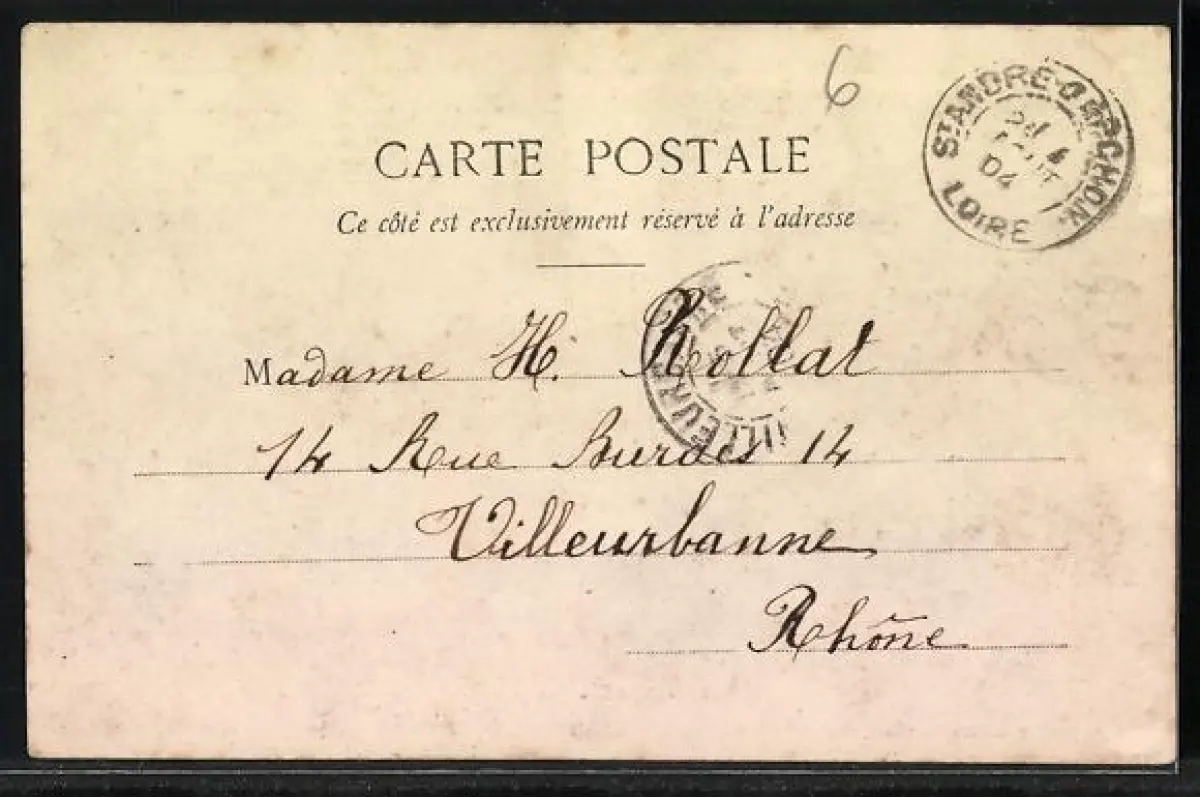 6
ST ANDRE-D'APCHON.
LOIRE
04
CARTE POSTALE
Ce côté est exclusivement réservé à l'adresse
Madame H. Rollat
14 Rue Burdes 14
Villeurbanne
Rhône